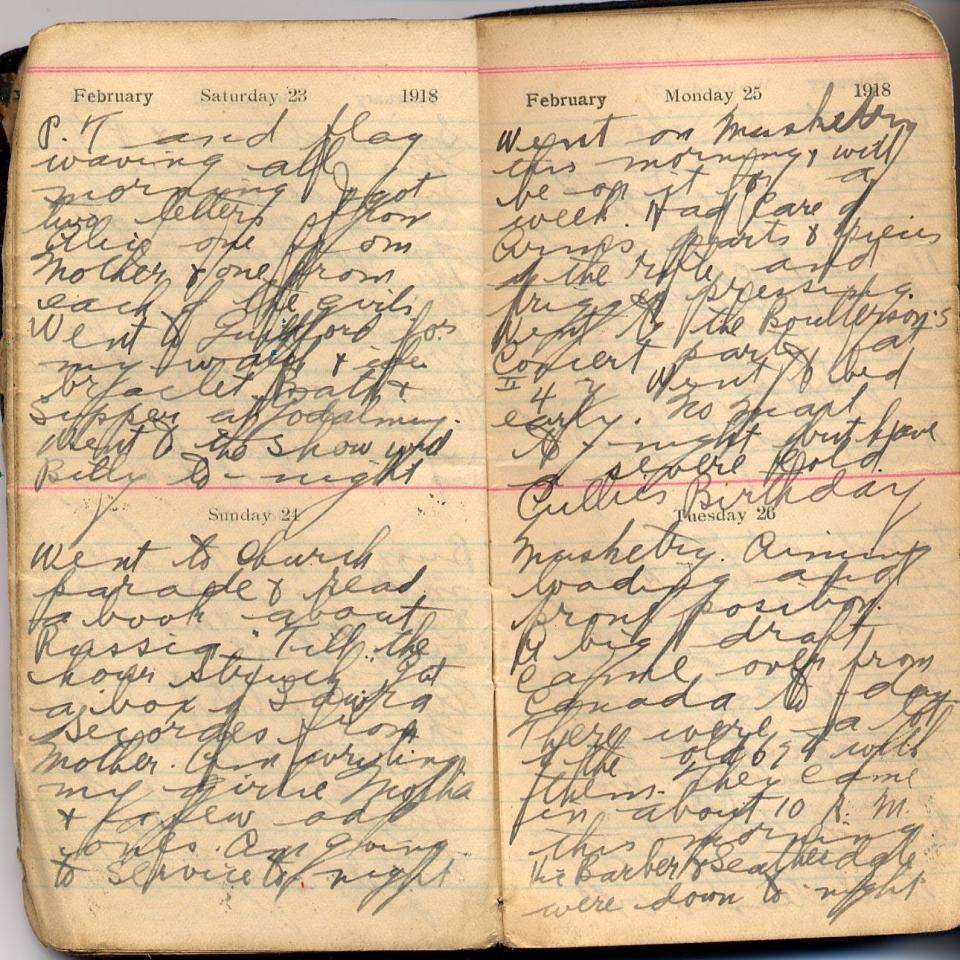 February Saturday 23 1918
P.T and flag
waving all
morning I got
two letters from
Alie one from
Mother & one from
each of the girls
Went to Guildford for
my watch &
bracelet. Bath &
Supper at Godalming.
Went to the show with
Billy to-night
Sunday 24
Went to Church
parade & read
a book about
Russia. "Till the
hour struck" Got
a box of
from
Mother. Am writing
my girlie Mother
& a few odd
ones. Am going
to Service to night
February Monday 25 1918
Went on Musketry
this morning, & will
be on it for a
week. Had Care of
arms, parts & pieces
of the rifle, and
trigger pressing.
Went to the Boulterson's
Concert party at
II 4 Y Went to bed
early. No meat
to-night but have
a severe cold.
Cullies Birthday
Tuesday 26
Musketry. Aiming
loading and
front position.
A big draft
came over from
Canada to-day.
There were a lot
of the old 69th with
them. They came
in about 10 A. M.
this morning.
Barber & Seatherdale
were down to night